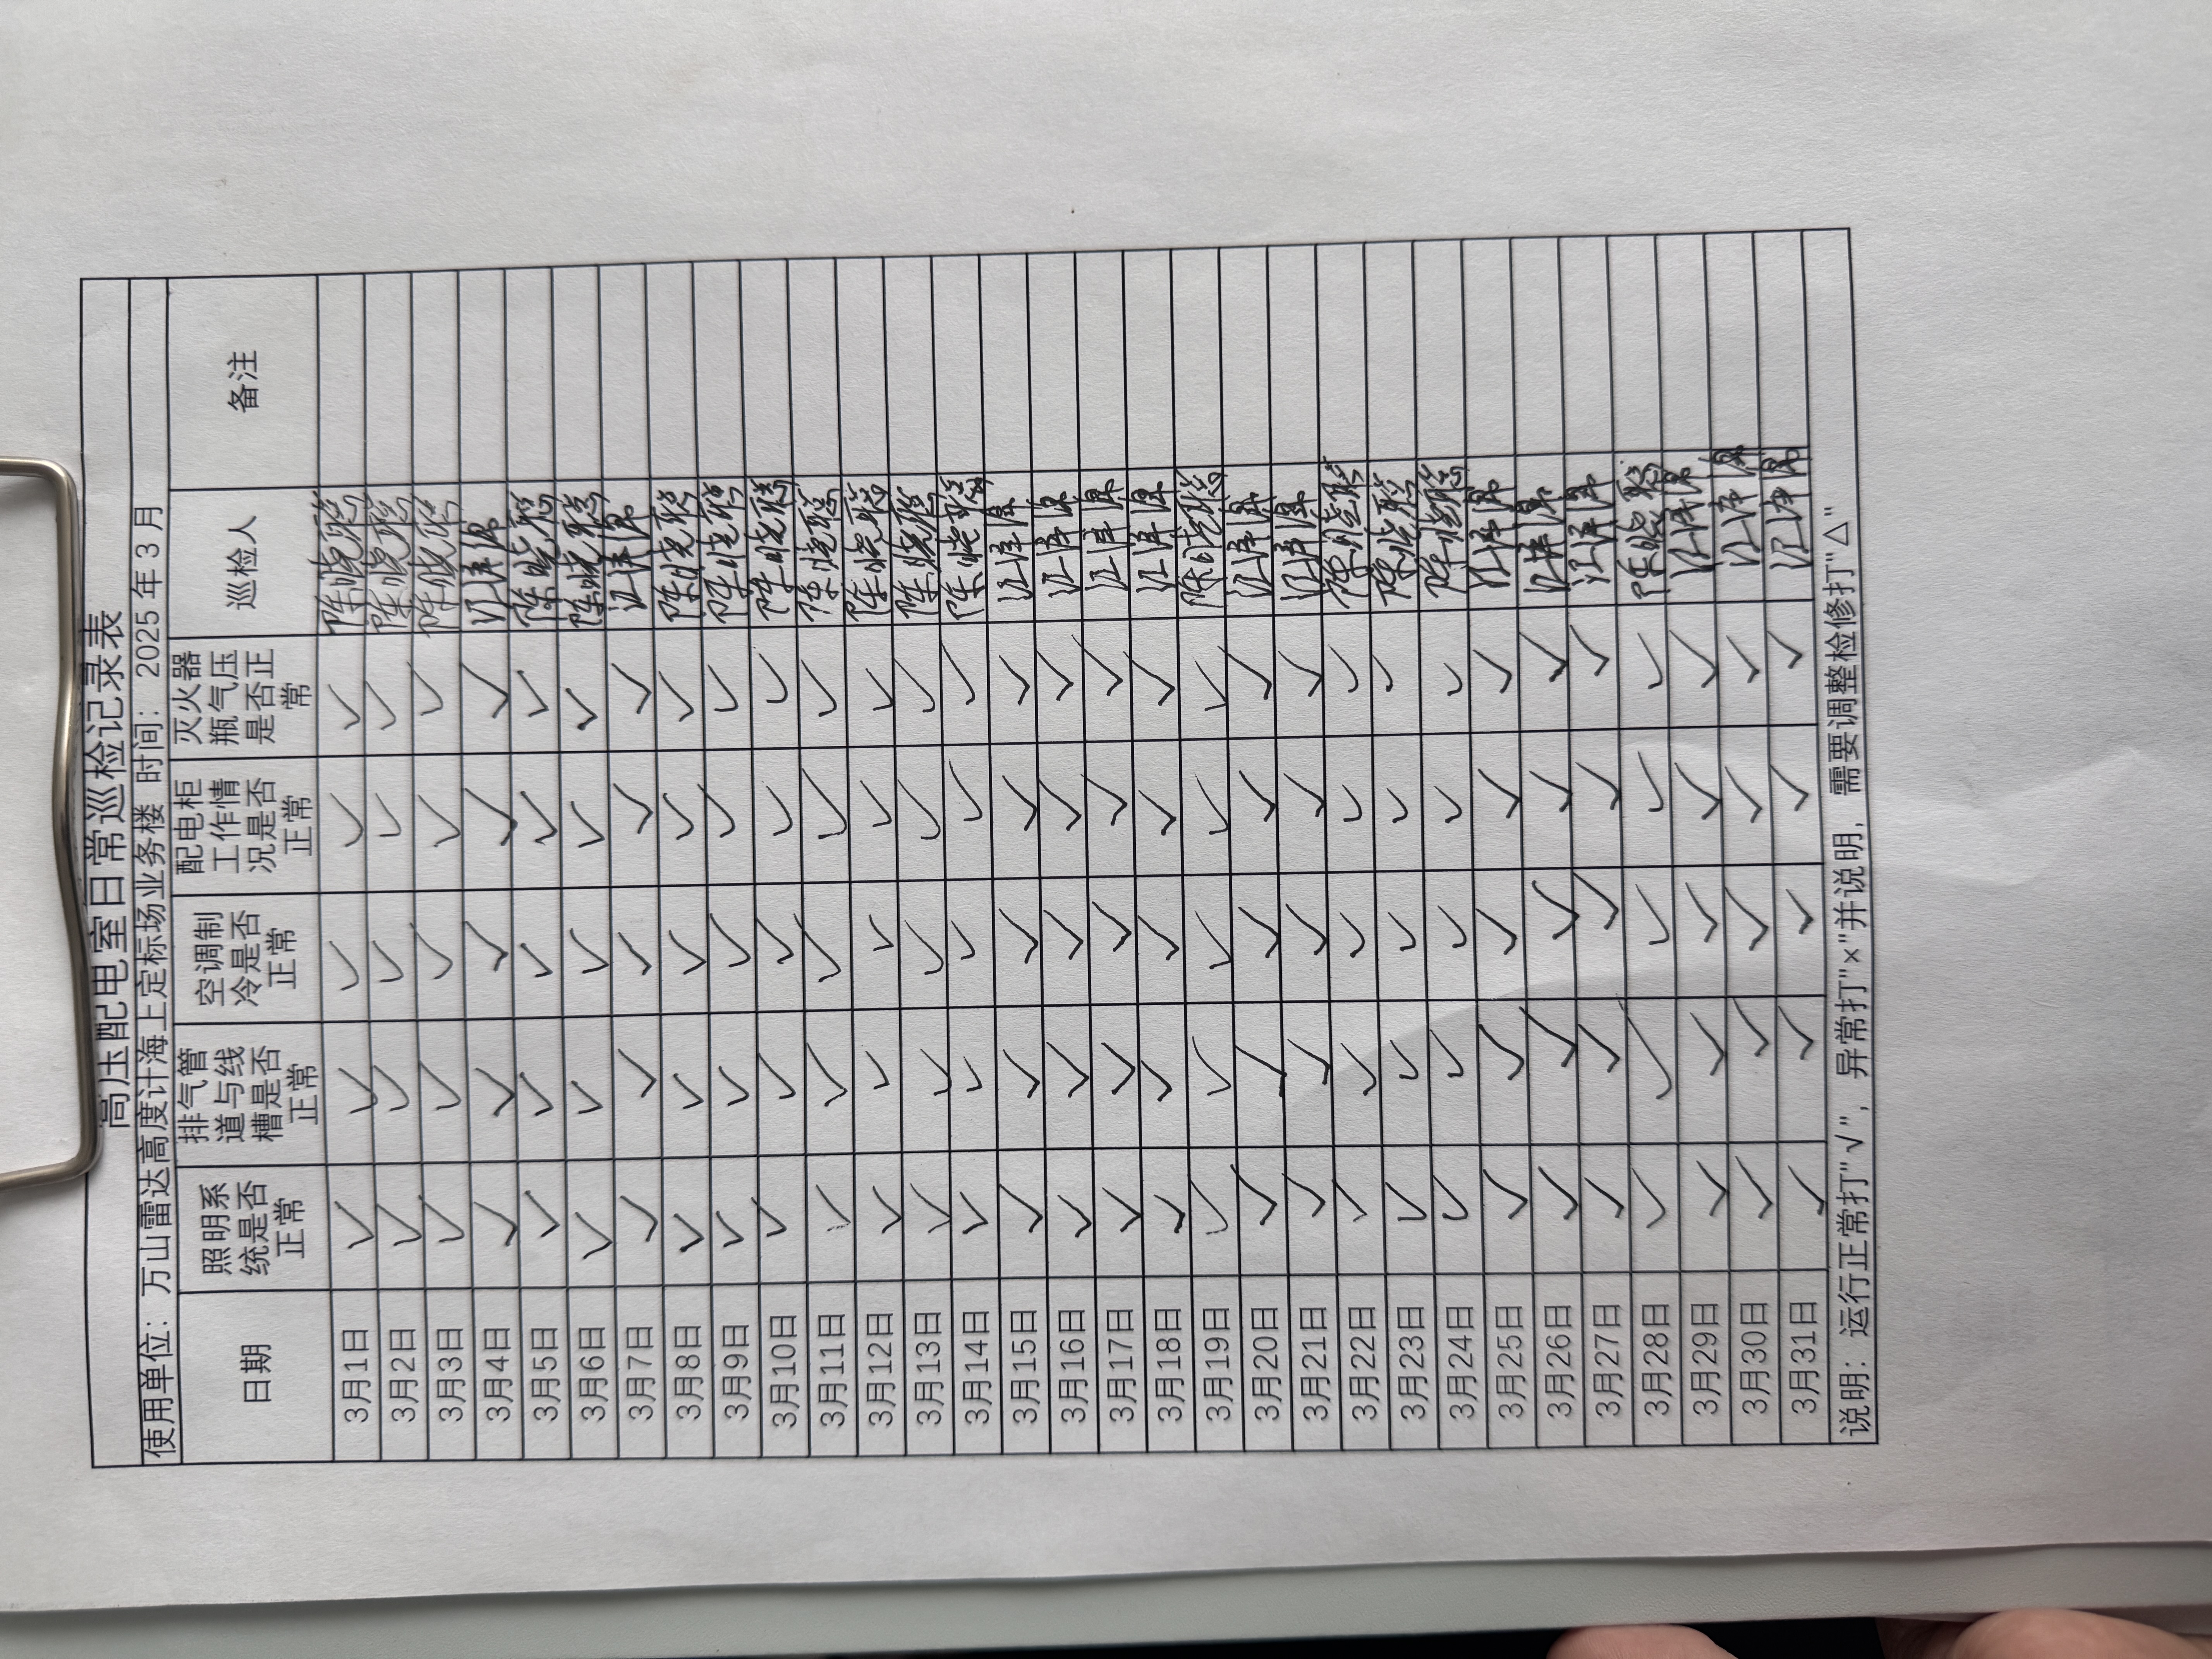 高压配电室日常巡检记录表
使用单位：万山雷达高度计海上定标场业务楼 时间：2025年3月
日期 照明系统是否正常 排气管道与线槽是否正常 空调制冷是否正常 配电柜工作情况是否正常 灭火器瓶气压是否正常 巡检人 备注
3月1日 √ √ √ √ √ 陈晓聪
3月2日 √ √ √ √ √ 陈晓聪
3月3日 √ √ √ √ √ 陈晓聪
3月4日 √ √ √ √ √
3月5日 √ √ √ √ √ 陈晓聪
3月6日 √ √ √ √ √ 陈晓聪
3月7日 √ √ √ √ √
3月8日 √ √ √ √ √ 陈晓聪
3月9日 √ √ √ √ √ 陈晓聪
3月10日 √ √ √ √ √ 陈晓聪
3月11日 √ √ √ √ √ 陈晓聪
3月12日 √ √ √ √ √ 陈晓聪
3月13日 √ √ √ √ √ 陈晓聪
3月14日 √ √ √ √ √ 陈晓聪
3月15日 √ √ √ √ √
3月16日 √ √ √ √ √
3月17日 √ √ √ √ √
3月18日 √ √ √ √ √
3月19日 √ √ √ √ √ 陈晓聪
3月20日 √ √ √ √ √
3月21日 √ √ √ √ √
3月22日 √ √ √ √ √ 陈晓聪
3月23日 √ √ √ √ √ 陈晓聪
3月24日 √ √ √ √ √ 陈晓聪
3月25日 √ √ √ √ √
3月26日 √ √ √ √ √
3月27日 √ √ √ √ √
3月28日 √ √ √ √ √ 陈晓聪
3月29日 √ √ √ √ √
3月30日 √ √ √ √ √
3月31日 √ √ √ √ √
说明：运行正常打"√"，异常打"×"并说明，需要调整检修打"△"